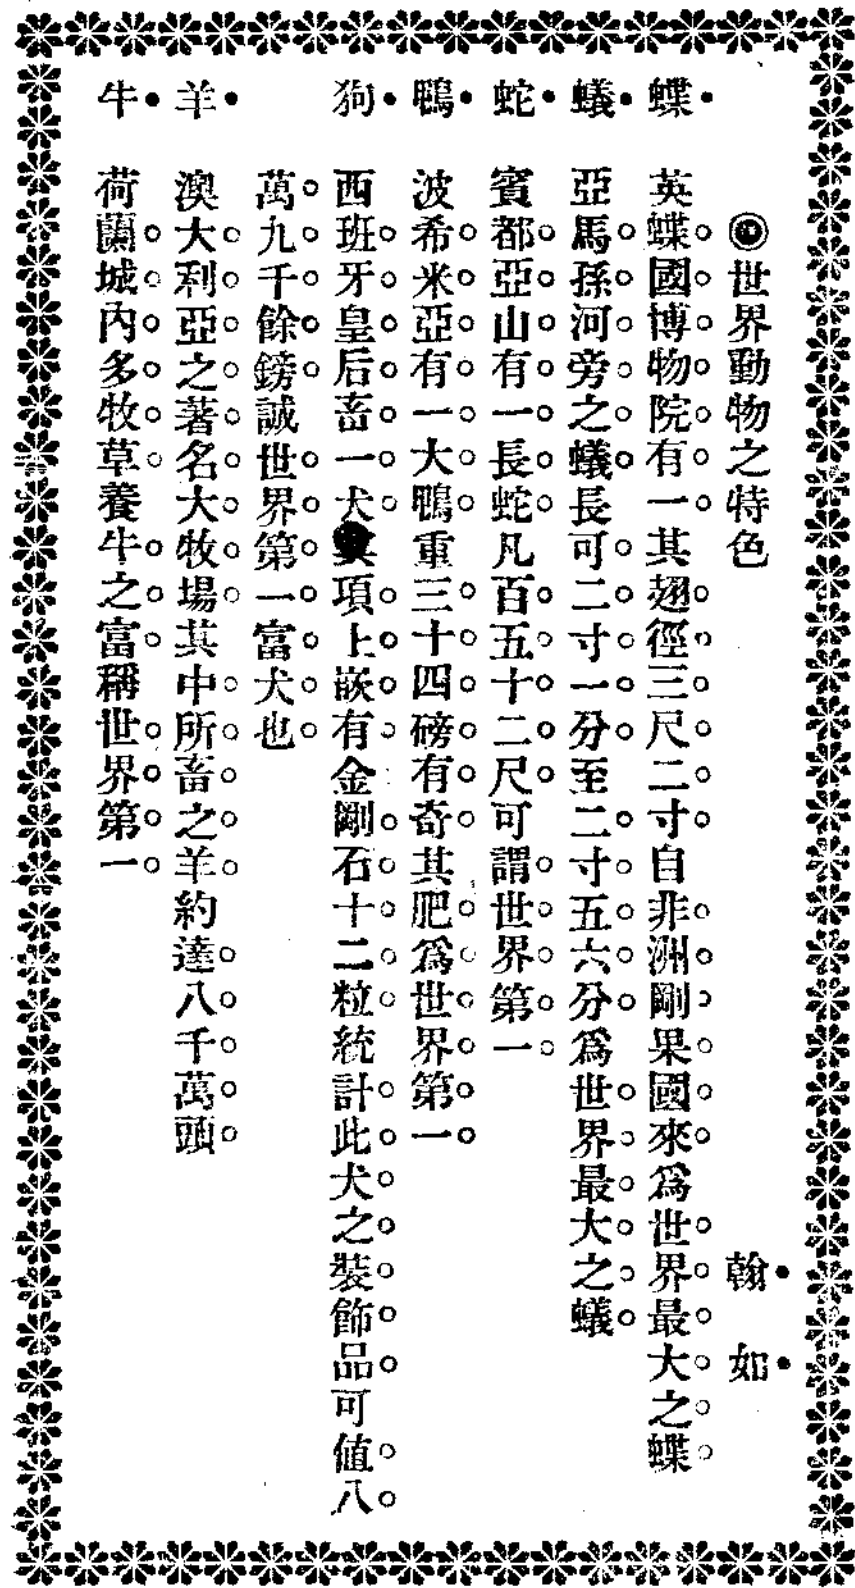 ◉世界動物之特色 翰如
蝶 英蝶國博物院有一其翅徑三尺二寸自非洲剛果國來爲世界最大之蝶
蟻 亞馬孫河旁之蟻長可二寸一分至二寸五六分爲世界最大之蟻
蛇 賓都亞山有一長蛇凡百五十二尺可謂世界第一
鴨 波希米亞有一大鴨重三十四磅有奇其肥爲世界第一
狗 西班牙皇后畜一犬其項上嵌有金剛石十二粒統計此犬之裝飾品可值八
萬九千餘鎊誠世界第一富犬也
羊 澳大利亞之著名大牧場其中所畜之羊約達八千萬頭
牛 荷蘭城內多牧草養牛之富稱世界第一